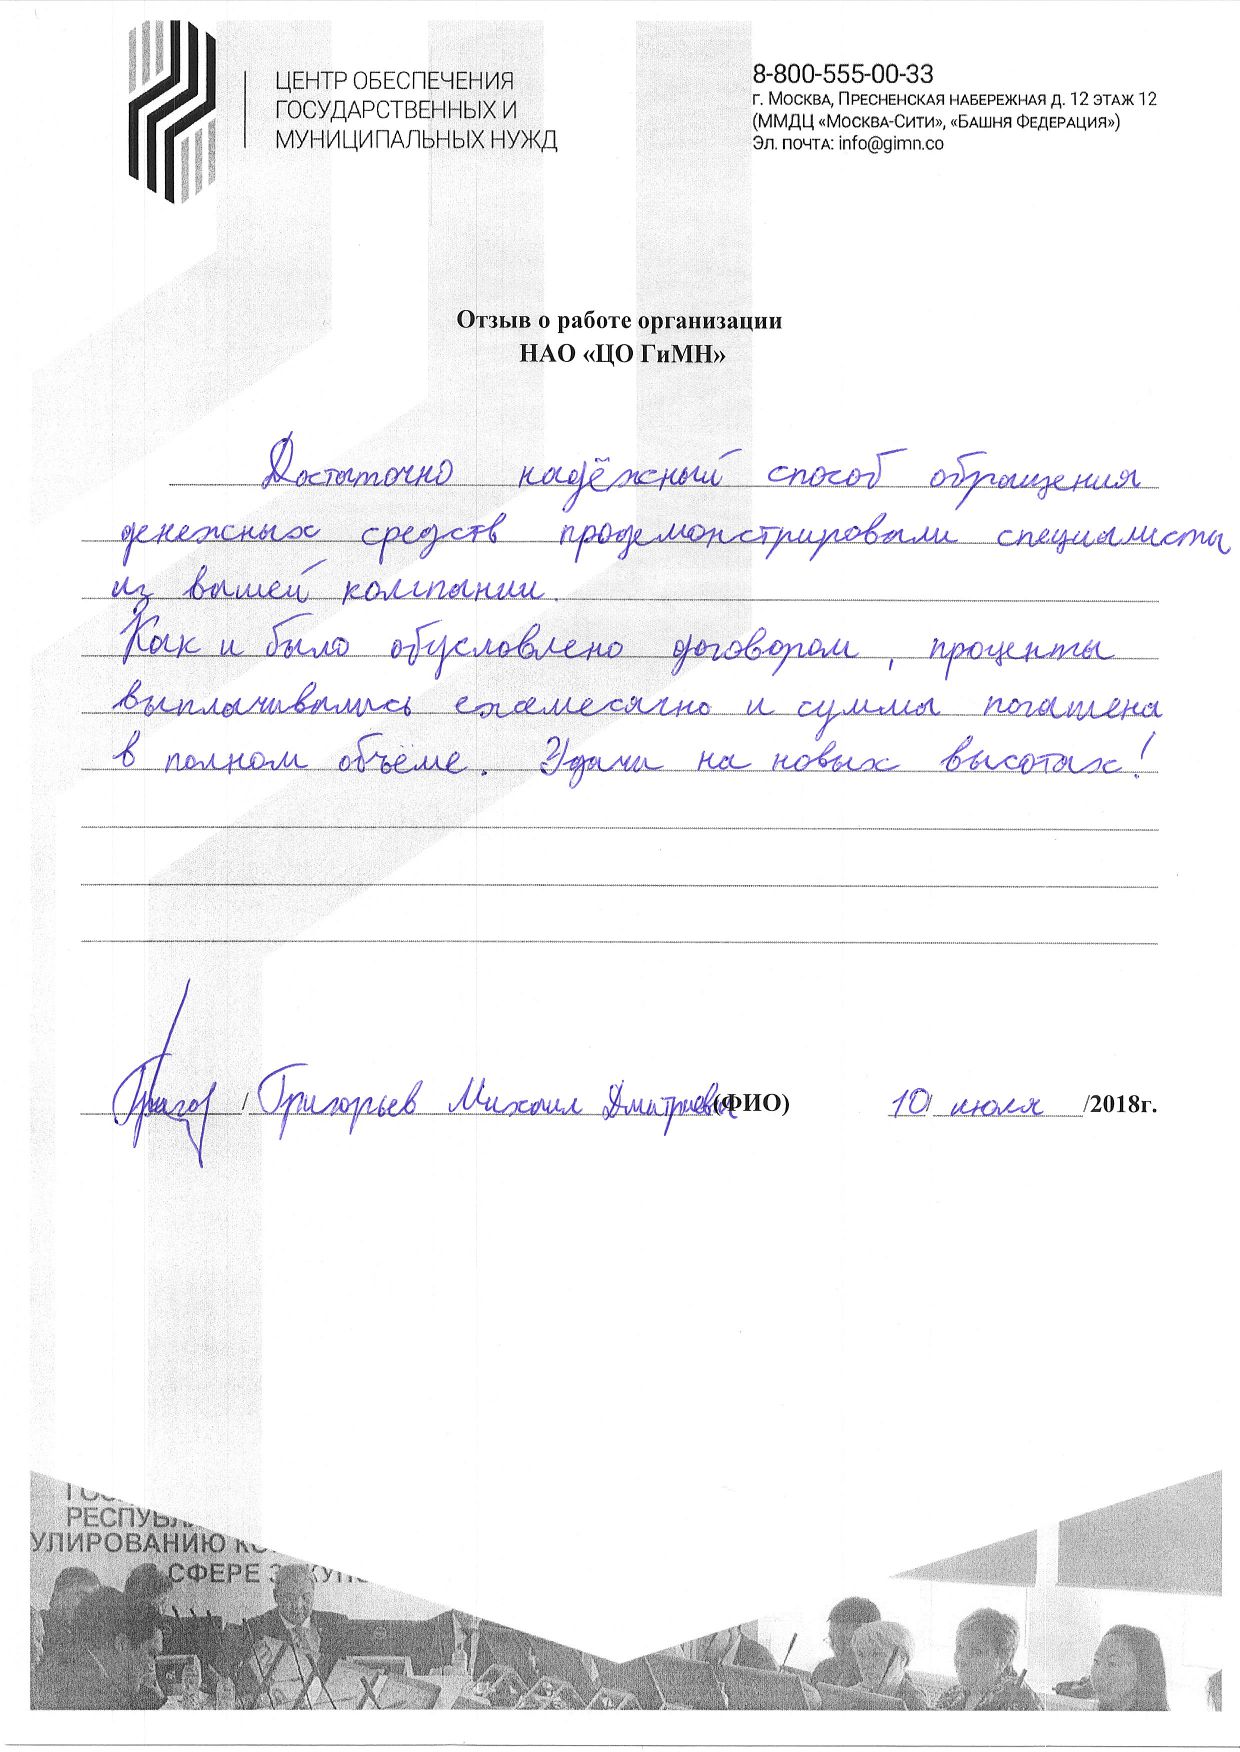 ЦЕНТР ОБЕСПЕЧЕНИЯ
ГОСУДАРСТВЕННЫХ И
МУНИЦИПАЛЬНЫХ НУЖД
8-800-555-00-33
г. Москва, Пресненская набережная д. 12 этаж 12
(ММДЦ «Москва-Сити», «Башня Федерация»)
Эл. почта: info@gimn.co
Отзыв о работе организации
НАО «ЦО ГиМН»
Достаточно надёжный способ обращения
денежных средств продемонстрировали специалисты
из вашей компании.
Как и было обусловлено договором, проценты
выплачивались ежемесячно и сумма погашена
в полном объёме. Удачи на новых высотах!
Григор / Григорьев Михаил Дмитриевич (ФИО) 10/ июля /2018г.
РЕСПУБЛ
УЛИРОВАНИЮ КО
СФЕРЕ ЗАКУП